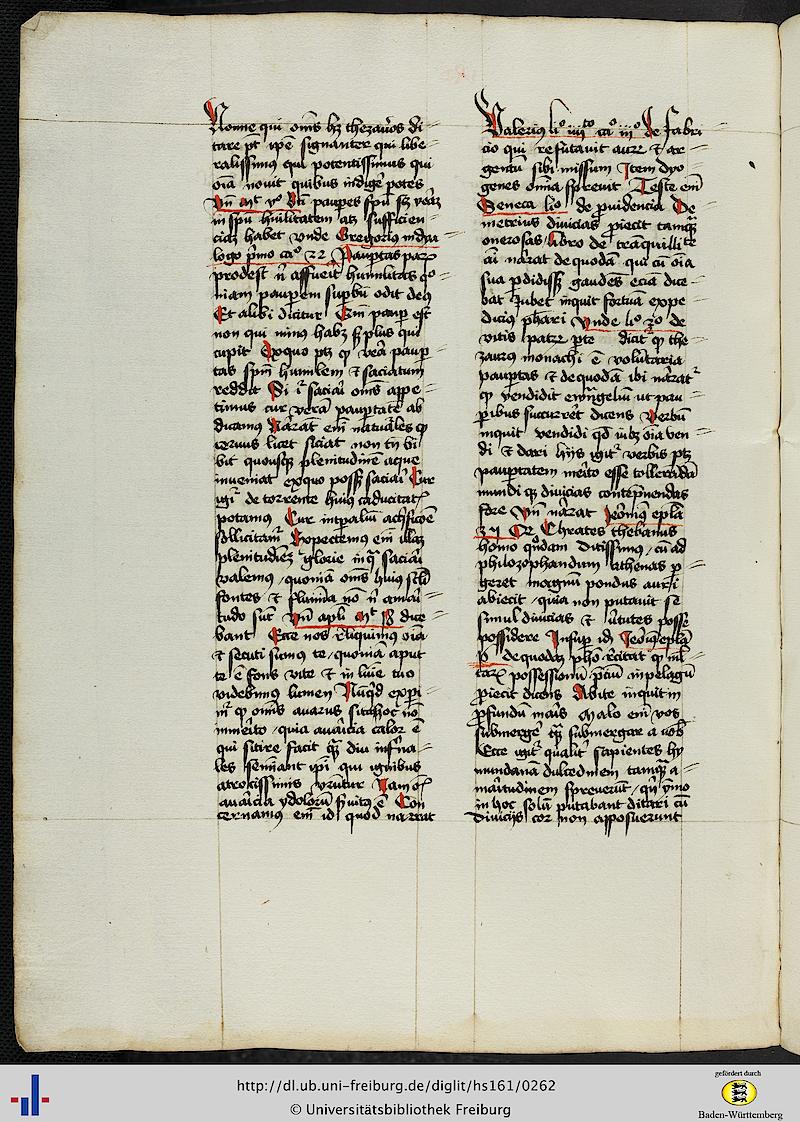 Nonne qui om̄s hʒ thezauros di
tare pt̄ ip̄e signanter qui libe
ralissimus qui potentissimus qui
oīa nouit quibus indigē potes
Vn̄ Mt vº Bti paupes spū sʒ verā
in spū hūilitatem atʒ sufficien
ciā habet vnde Gregorius in dya
logo pimo caº 22 Paupertas
prodest n̄ assuerit humilitas qº
niam paupem supbū odit deus
Et alibi dicitur Em̄ paup est
non qui minus habʒ sʒ plus qui
cupit Exquo ptʒ qʒ vera paup
tas spm̄ humilem & saciatum
reddit Si gͥ saciari om̄s appe
timus cur verā paupertatē ab
dicamus Narrāt em̄ naturales qʒ
ceruus licet siciat non tn̄ bi
bit quousqʒ plenitudinē aque
inueniat exquo possʒ saciari Cur
igr̄ de torrente huius caducitatis
potamus Cur
sollicitamur Expectemus em̄ illaʒ
plenitudiēʒ glorie in qͣ saciari
valemus / quoniā om̄s huius scl̄i
fontes & flumina nō n̄
tudo sūt Vn̄ apl̄i Mt 18 dice
bant Ecce nos reliquimus oīa
& secuti sumus te / quoniā aput
te ē fons vite & in lumīe tuo
videbimus lumen Nūqͥd expi
mr̄ qʒ om̄s auarus sitit hoc nō
inmerito / quia auaricia calor ē
qui sitire facit qʒ diu inferna
les seminant ipi qui ignibus
atrocissimis vrūtur Nam
auaricia ydolorū suitus ē Con
cernamus em̄ id quod narrat
Valerius liº iiiitº caº iiiº de fabri
cio qui refutauit aurʒ & ar
gentū sibi missum Item dyo
genes om̄ia spreuit Teste em̄
Seneca liº de puidencia De
metrius diuicias piecit tamqʒ
onerosas libro de tranquillitate
aī narrat de quodā qui cū oīa
sua pdidissʒ gaudēs eciā dice
bat Jubet inquit fortūa expe
dicius phari Vnde liº 2º de
vitis patrʒ pte dicit qʒ the
zaurus monachi ē volūtaria
paupertas & de quodā ibi narrat
qʒ vendidit ewangelium ut pau
peribus succurreret dicens Verbū
inquit vendidi qd̄ iubʒ oīa ven
di & dari hijs igr̄ verbis ptʒ
paupertatem merito esse tollerādā
mundi qʒ diuicias contēpnendas
fore Vn̄ narrat Jeronimus epl̄a
Chrates thebanus
homo quondam ditissimus / cū ad
philozophandum athenas p
geret magnū pondus auri
abiecit / quia non putauit se
simul diuicias & vtutes posse
possidere Insup id̄ Jeronimus epl̄a
de quodaʒ pho recitat qʒ
possessionū pciū in pelagū
piecit dicens Abite inquit in
pfundū maris Malo em̄ vos
submergē qʒ submergar a vob
Ecce igr̄ qualiter sapientes hy
mundanā dulcedinem tamqʒ a
maritudinem spreuerūt / qn̄ ymo
in hoc solū putabant ditari cū
diuicijs cor non apposuerunt
http://dl.ub.uni-freiburg.de/diglit/hs161/0262
© Universitätsbibliothek Freiburg
gefördert durch
Baden-Württemberg